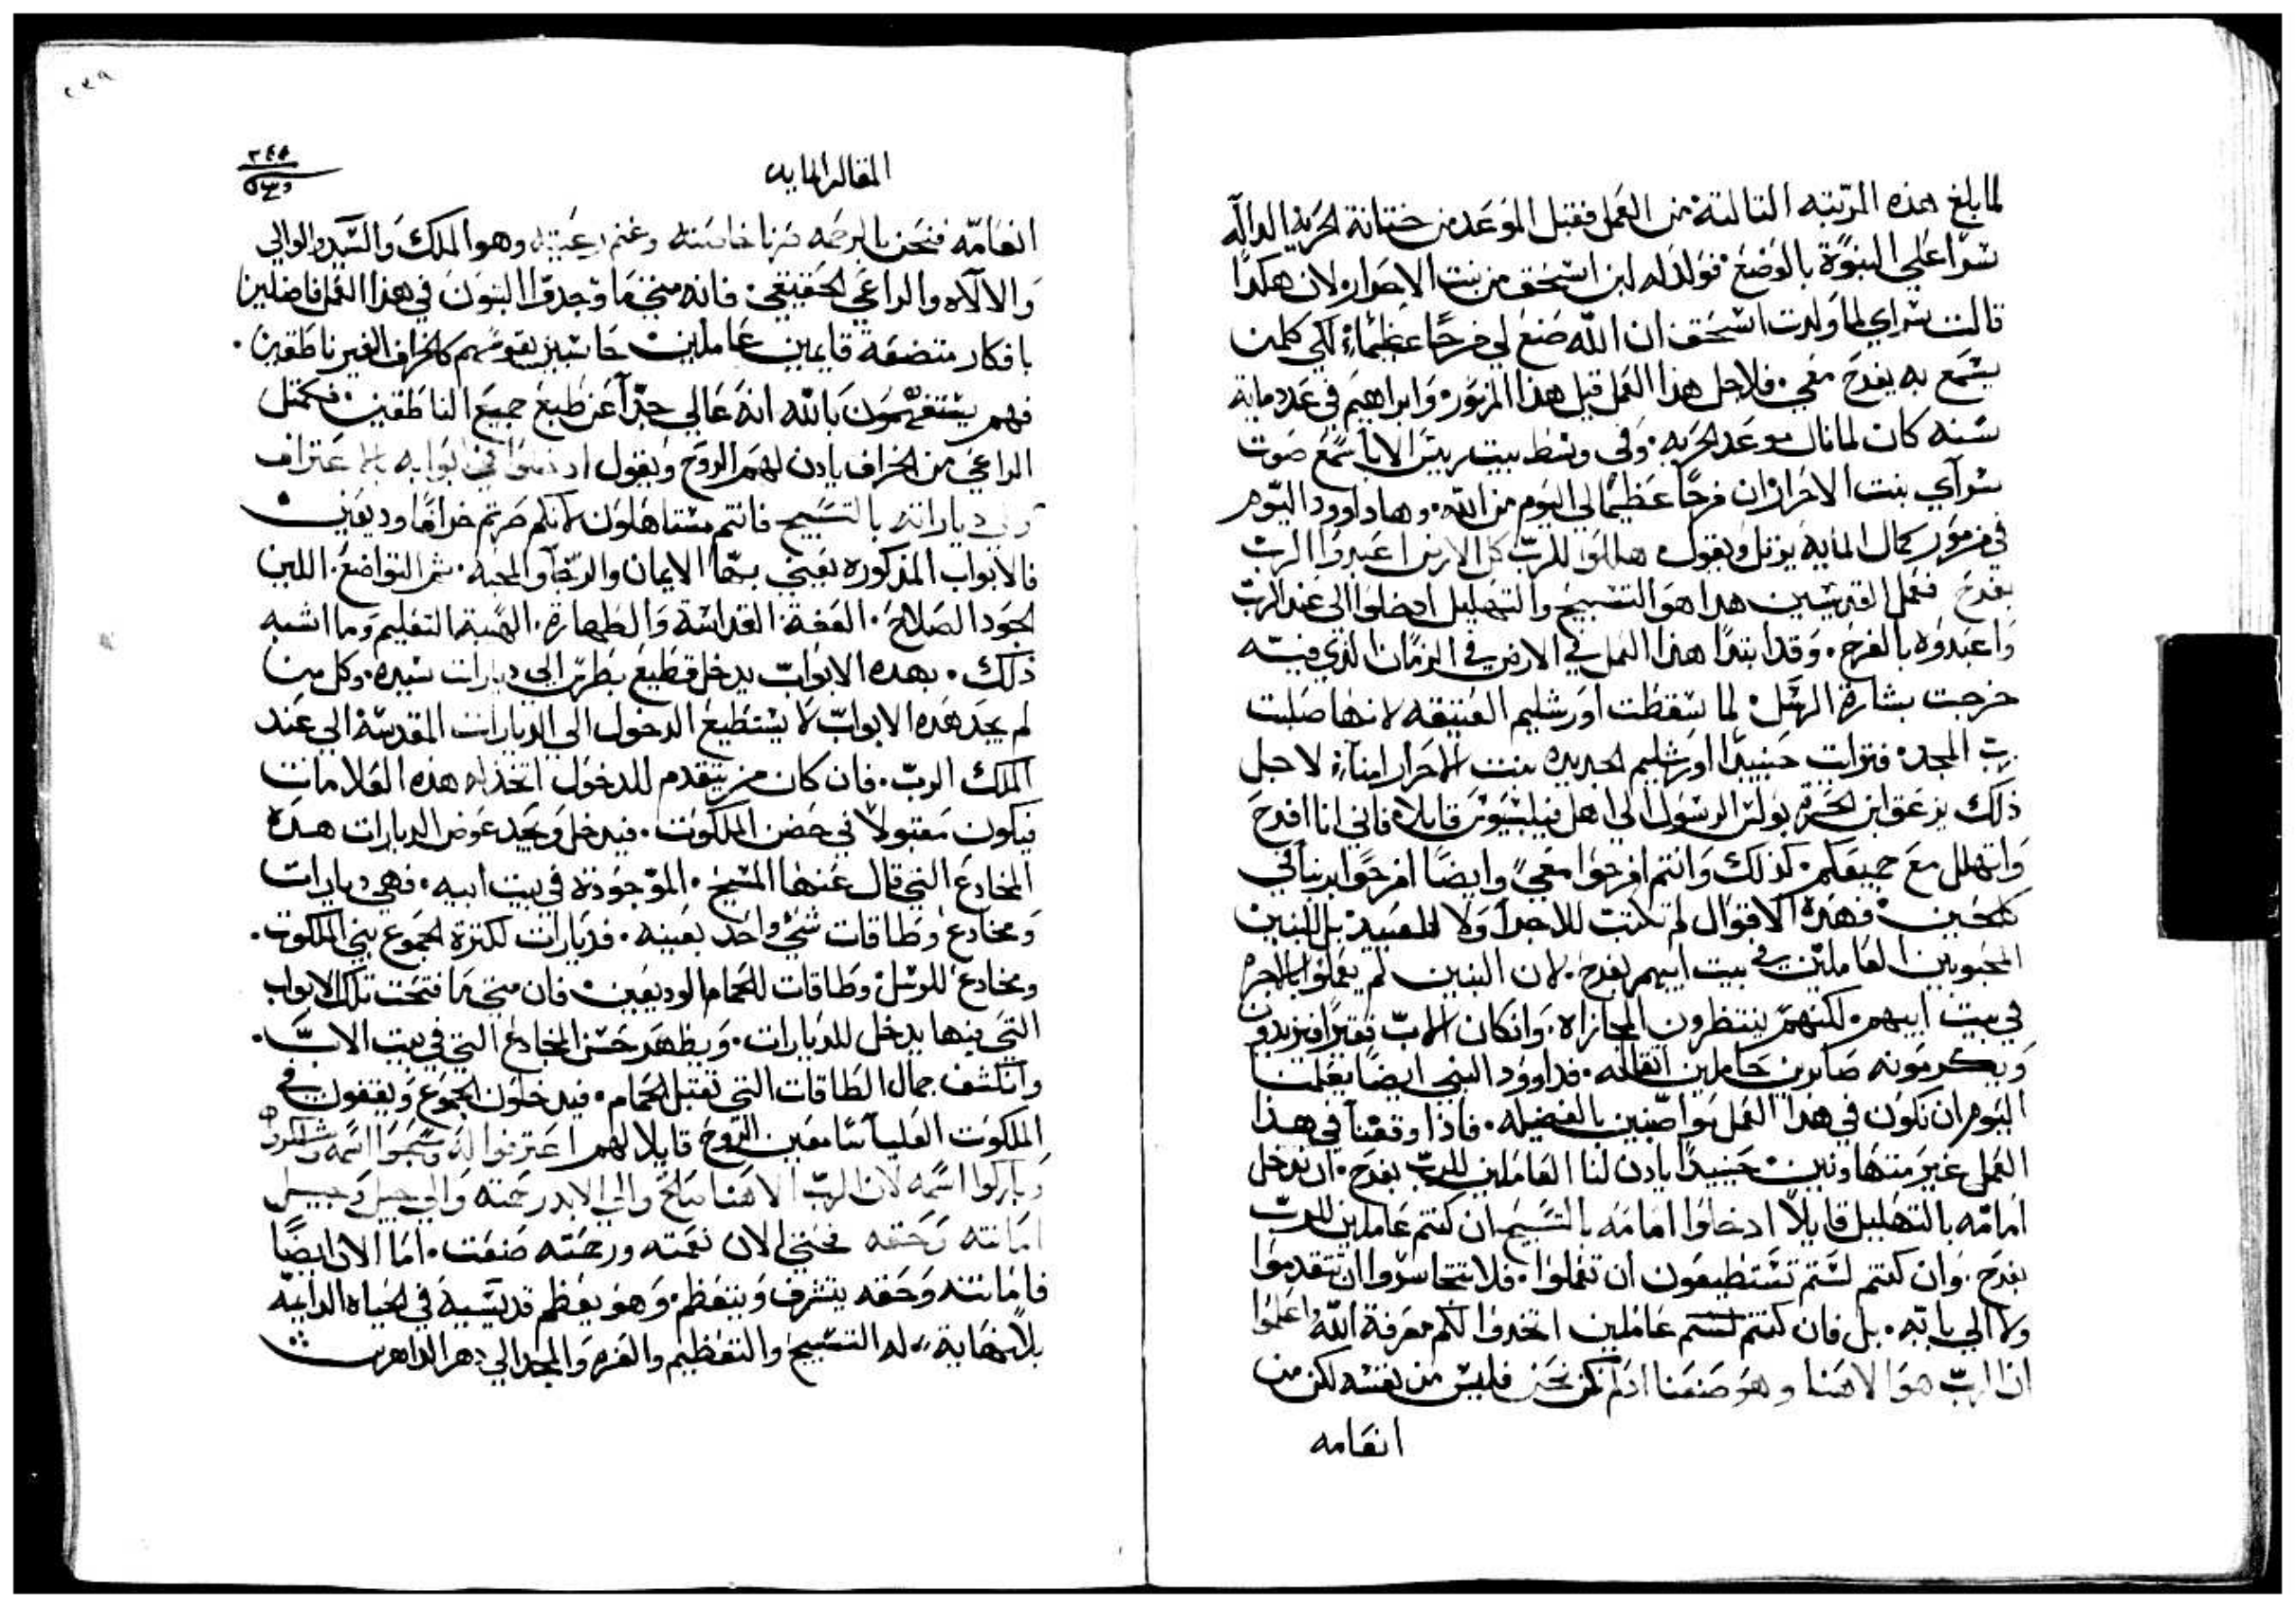 لما بلغ هذه الرتبه التالتة من العمل فقبل الموعد من ختانة الحرية الداله
سرا علي البنوة بالوضع فولد له ابن اسحق من بنت الاحرار لان هكدا
قالت سراي لما ولدت اسحق ان الله صنع لي فرحًا عظيماً لكي كلمن
يسمع به يفرح معي. فلاجل هذا العمل قيل هذا المزمور وابراهيم في عدد ماية
سنه كان لما نال موعد الحريه. وفي وسط بيت ريس الابا سمع صوت
سرآي بنت الاحرار ان فرحًا عظيمًا لي اليوم من الله. وها داوود اليوم
في مزمور كمال المايه يرتل ويقول هللوا للرب كل الارض اعبدوا الرب
بفرح فعمل القديسين هدا هو التسبيح والتهليل ادخلوا الي عند الرب
واعبدوه بالفرح. وقد ابتدا هذا العمل في الارض في الزمان الذي فيه
خرجت بشارة الرسل لما سقطت اورشليم العتيقه لانها صلبت
رب المجد فترات حينيدًا اورشليم الجديده بنت الاحرار امناء لاجل
ذلك يزعق ابن الحرة بولس الرسول الي اهل فيلبسيوس قايلا فاني انا افرح
واتهلل مع جميعكم. كذلك وانتم افرحوا معي وايضًا افرحوا بربنا في
كلحين فهذه الاقوال لم تكتب للاجرآ ولا للعبيد بل للبنين
المحبوبين العاملين في بيت ابيهم بفرح. لان البنين لم يعملوا بالاجره
في بيت ابيهم. لكنهم ينتظرون المجازاه. وان كان الاب فقيرًا فيزيدون
ويكرمونه صابرين حاملين اثقاله. فداوود النبي ايضًا يعلمنا
اليوم ان نكون في هذا العمل مواضبين بالفضيله. فاذا وقفنا في هذا
العمل غير متهاونين حينيدًا يادن لنا العاملين للرب بفرح. ان ندخل
امامه بالتهليل قايلاً ادخلوا امامه بالتسبيح ان كنتم عاملين للرب
بفرح. وان كنتم لستم تستطيعون أن تعملوا. فلا تتجاسروا ان تتقدموا
ولا الي بابه. بل فان كنتم لستم عاملين اتخدوا لكم معرفة الله واعلموا
ان الرب هو الاهنا وهو صنعنا اذ لم نكن نحن فليس من نفسه لكن من
انعامه
المقاله المايه
٢٤٥
انعامه فنحن بالرحمه صرنا خاصته وغنم رعيته وهو الملك والسيد والوالي
والالاه والراعي الحقيقي. فانه متي ما وجدوا البنون في هذا العمل فاضلين
بافكار متضعة قايمين عاملين حاسبين نفوسهم كالخراف الغير ناطقين.
فهم يستفهمون بالله انه عالي جدًا عن طبع جميع الناطقين. فكمثل
الراعي من الخراف يادن لهم الروح ويقول ادخلوا في ابوابه بالاعتراف
وفي دياراته بالتسبيح فانتم مستاهلون لانكم صرتم خرافًا وديعين
فالابواب المذكوره يعني بها الايمان والرجا والمحبه. ثم التواضع. اللين
الجود الصلاح. العفة القداسة والطهارة. الهيبة التعليم وما اشبه
ذلك. بهده الابواب يدخل قطيع بطرس الي ديارات سيده. وكل من
لم يجد هده الابواب لا يستطيع الدخول الي الديارات المقدسة الي عند
الملك الرب. فان كان من يتقدم للدخول اتخذ له هذه العلامات
فيكون مقبولا في حضن الملكوت. فيدخل ويجد عوض الديارات هده
المخادع التي قال عنها المسيح. الموجودة في بيت ابيه. فهي ديارات
ومخادع وطاقات شي واحد بعينه. فديارات لكترة الجموع بني الملكوت.
ومخادع للرسل وطاقات للحمام الوديعين فان متي ما فتحت تلك الابواب
التي فيها يدخل للديارات. ويظهر حسن المخادع التي في بيت الاب.
وانكشف جمال الطاقات التي تقبل الحمام. فيدخلون الجموع ويقفون في
الملكوت العليا سامعين الروح قايلا لهم اعترفوا له وسبحوا اسمه
وباركوا اسمه لان الرب الاهنا صالح والي الابد رحمته والي جيل وجيل
امانته وحقه فحتي الان نعمته ورحمته صنعت. اما الان ايضًا
فامانته وحقه يتشرف ويتعظم. وهو يعظم قديسيه في الحياه الدايمه
بلا نهاية. له التسبيح والتعظيم والعزه والمجد الي دهر الداهرين